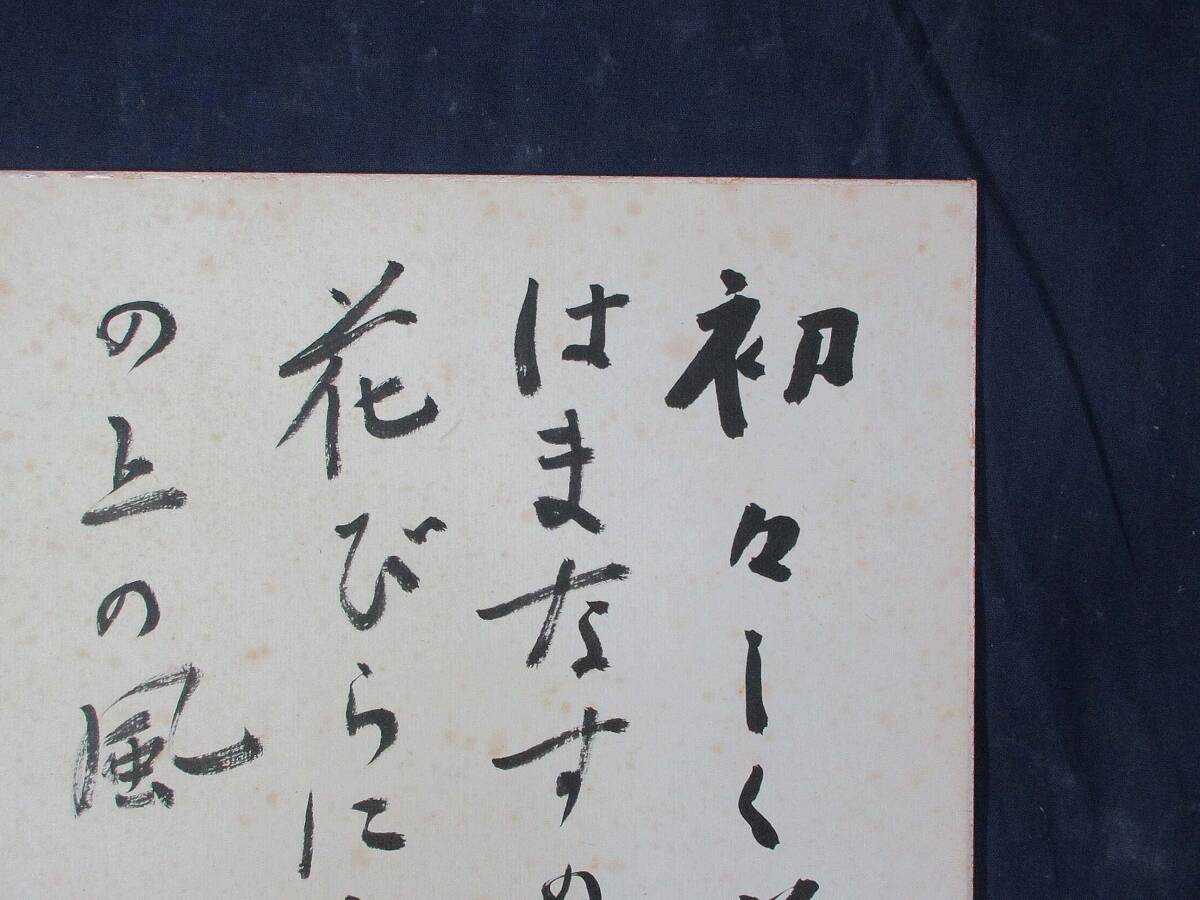 初々しく
はまなすの
花びらに
の上の風